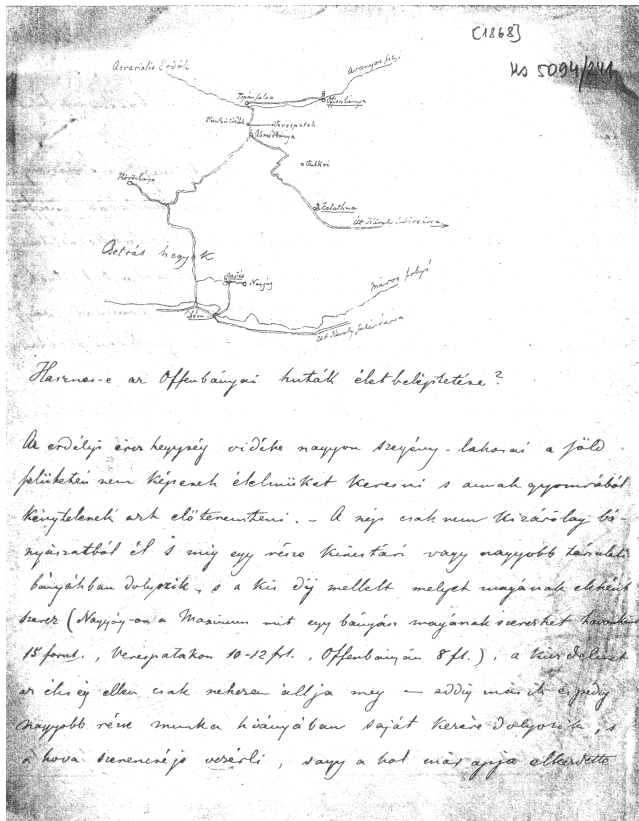 [1868]
Hs 5094/241
Aerarialis Erdők
Aranyos folyó
Topánfalva
Offenbánya
Verespatak
Abrudbánya
Vulkoi
Zalathna
út Károly fehérvárra
Körösbánya
Detrás hegyek
Nagyág
Maros folyó
Déva
út Károly fehérvárra
Hasznos-e az Offenbányai huták életbeléptetése?
Az erdélyi érczhegység vidéke nagyon szegény - lakosai a föld
felületén nem képesek élelmüket keresni s annak gyomrából
kénytelenek azt előteremteni. - A nép csak nem kizárólag bá-
nyászatból él s míg egy része kincstári vagy nagyobb társulati
bányákban dolgozik, s a kis díj mellett melyet magának ekként
szerez (Nagyág-on a Maximum mit egy bányász magának szerezhet havonként
15 forint., Verespatakon 10-12 ft., Offenbányán 8 ft.), a küzdelmet
az éhség ellen csak nehezen állja meg — addig más és pedig
nagyobb része munka hiányában saját kezére dolgozik, s
a hova szerencséje vezérli, vagy a hol már apja elkezdette